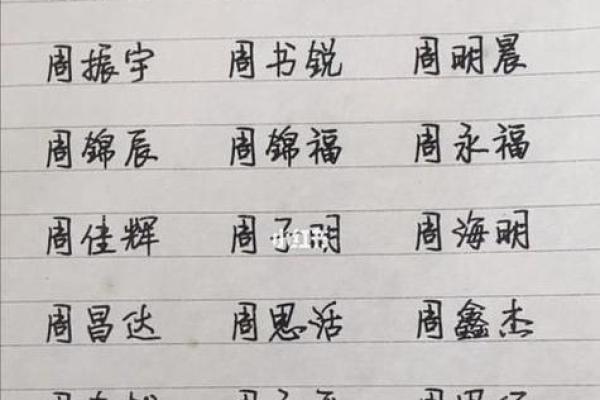 周振宇 周书锐 周明晨
周锦辰 周锦福 周永福
周佳辉 周子明 周海明
小红书
周昌达 周思活 周鑫杰